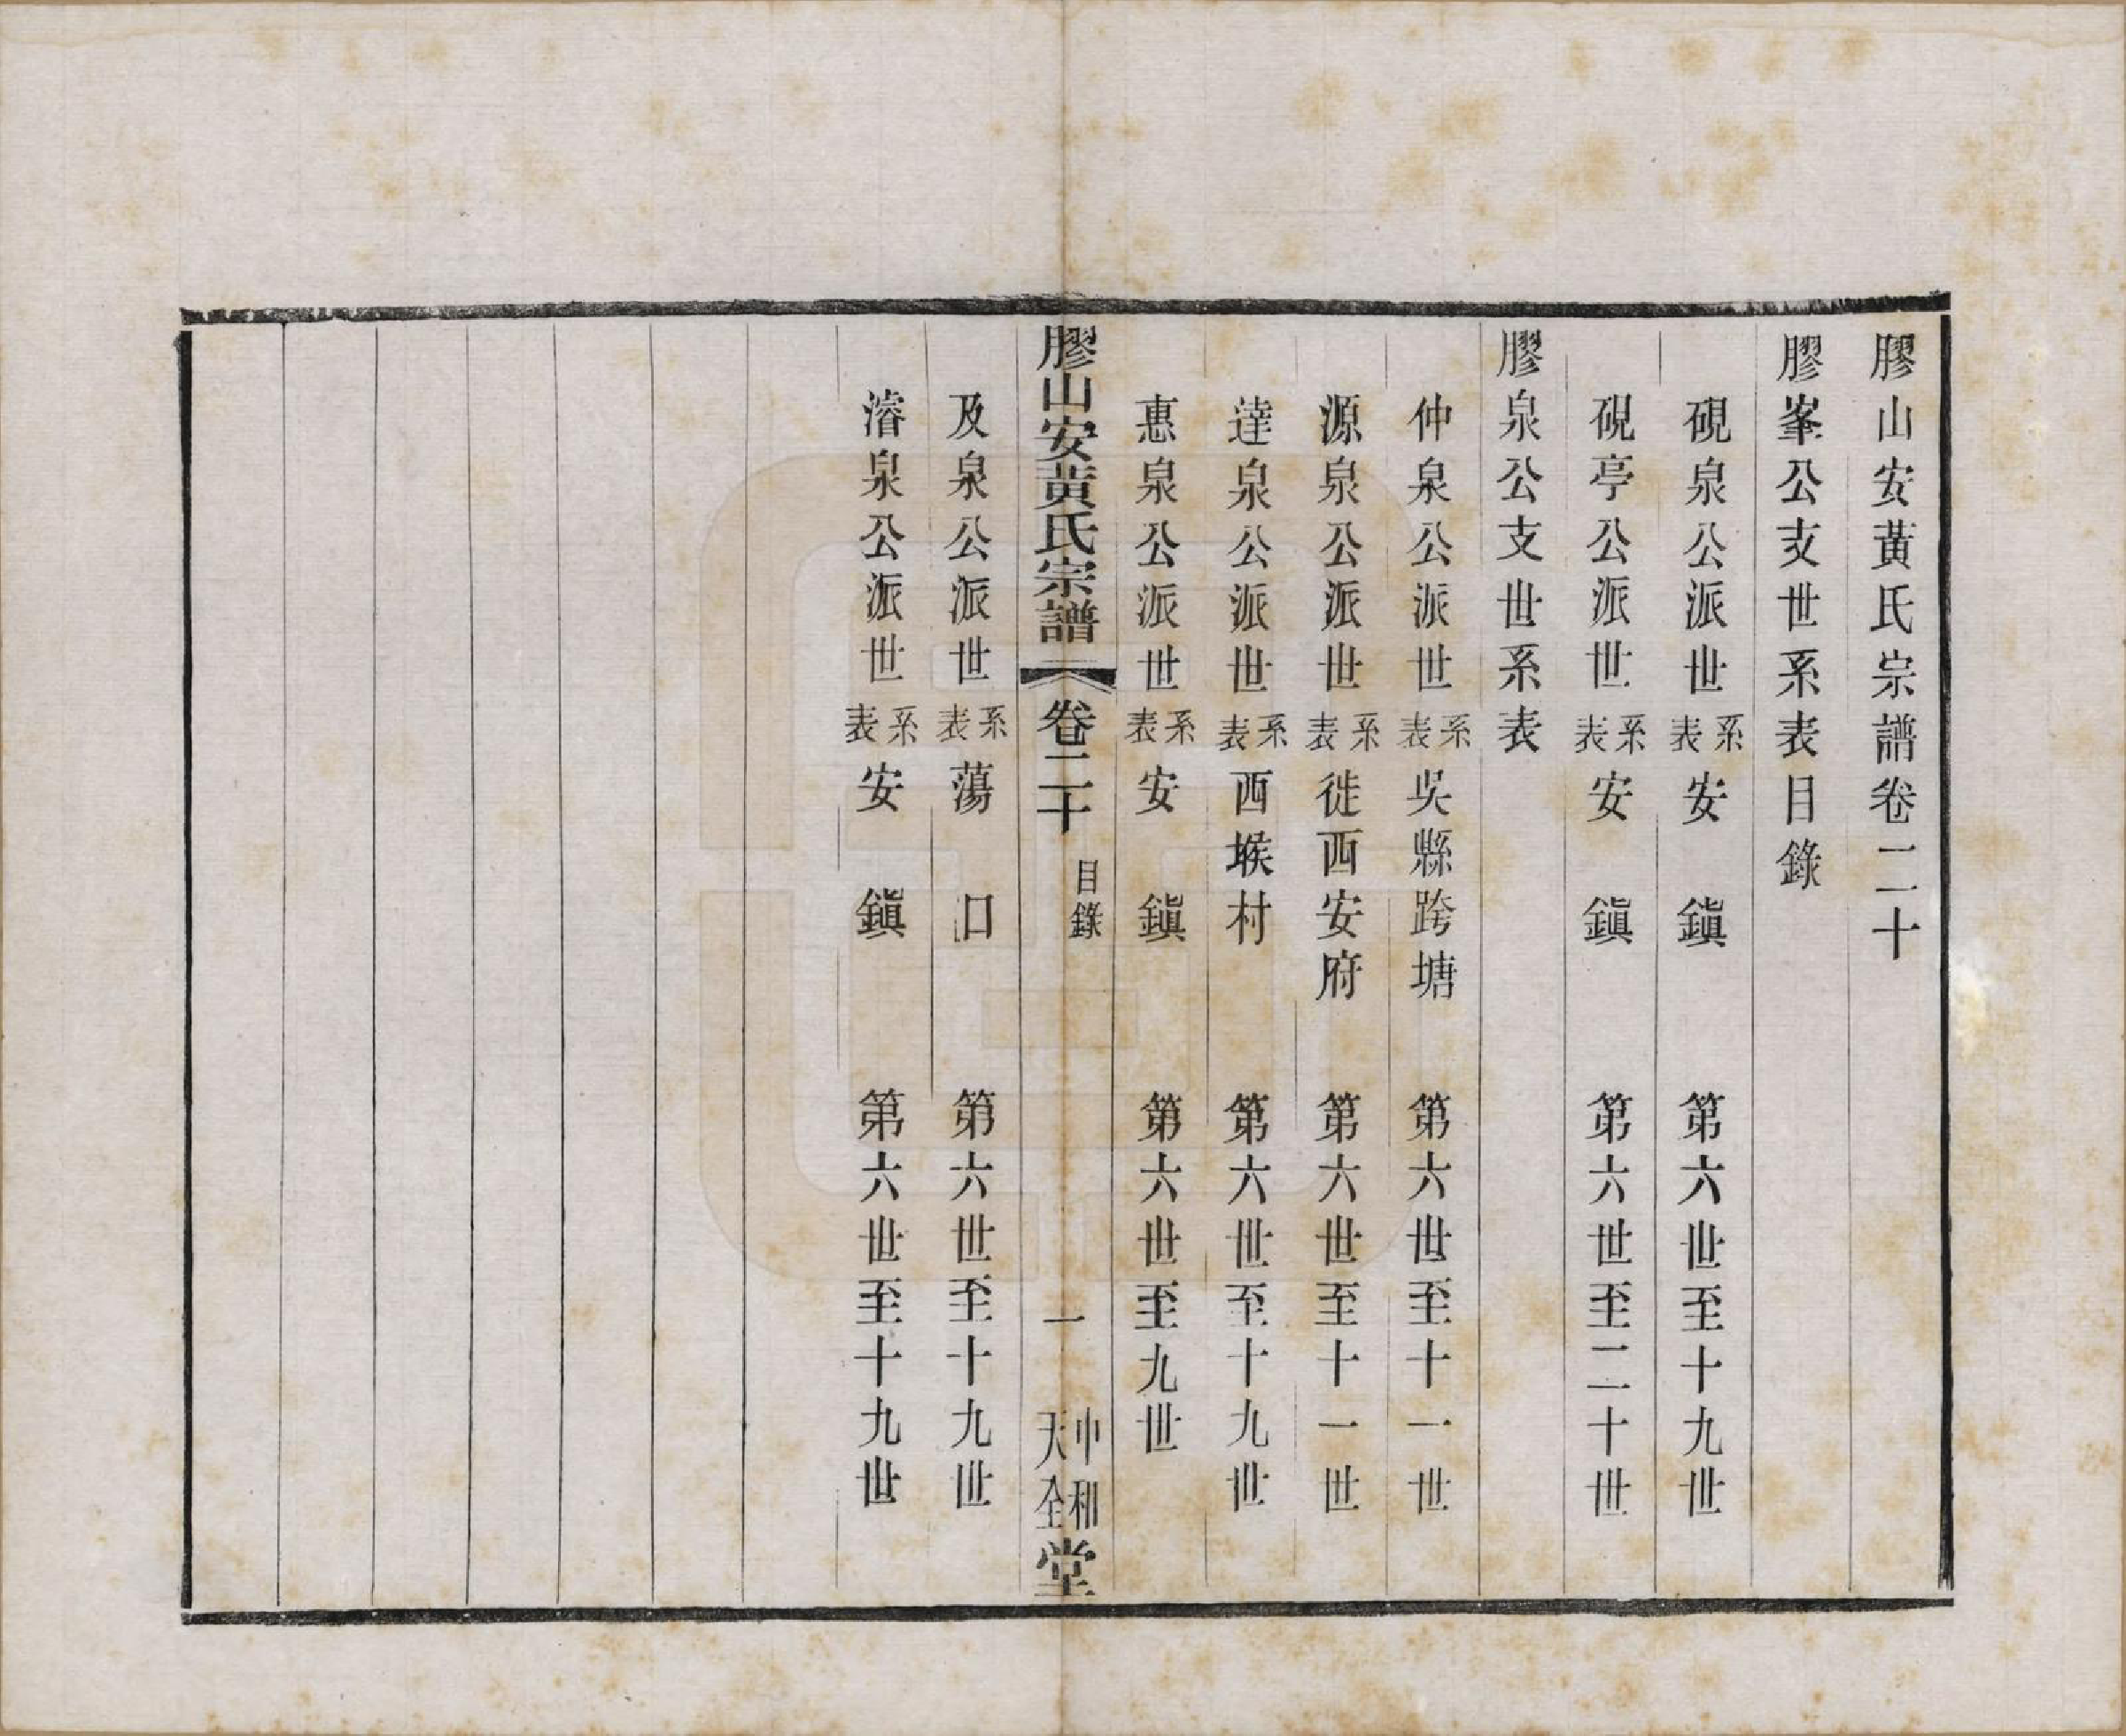 膠山安黃氏宗譜卷二十
膠峯公支世系表目錄
硯泉公派世系表安鎭 第六世至十九世
硯亭公派世系表安鎭 第六世至二十世
膠泉公支世系表
仲泉公派世系表吳縣跨塘 第六世至十一世
源泉公派世系表徙西安府 第六世至十一世
達泉公派世系表西堠村 第六世至十九世
惠泉公派世系表安鎭 第六世至九世
膠山安黃氏宗譜 卷二十 目錄 一 中和天全堂
及泉公派世系表蕩口 第六世至十九世
濬泉公派世系表安鎭 第六世至十九世